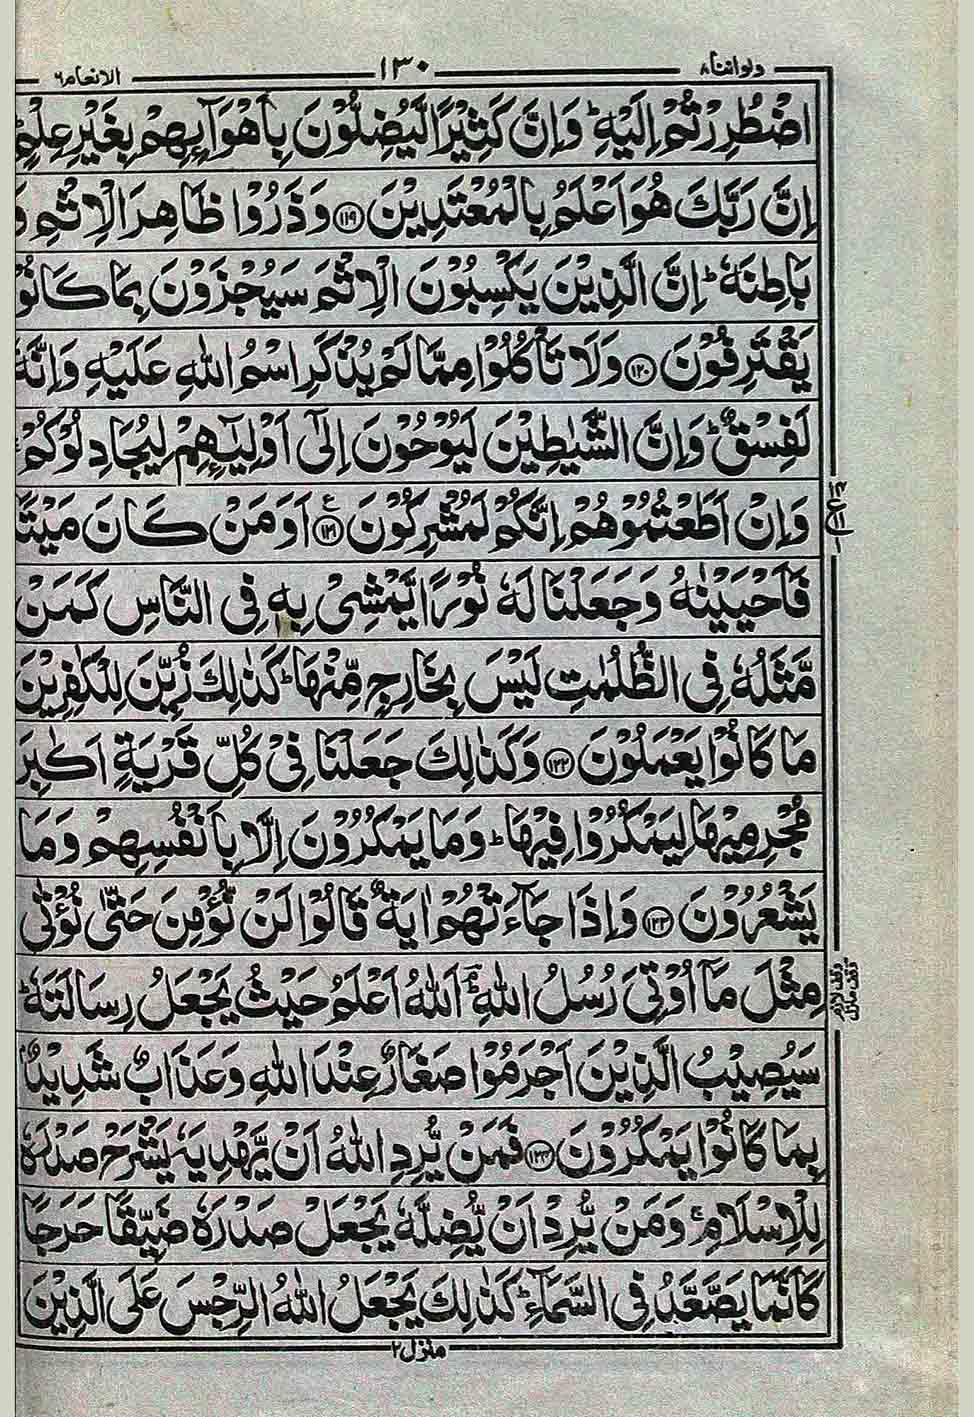 ولواننا ٨
١٣٠
الانعام ٦
اضْطُرِرْتُمْ اِلَيْهِ ؕ وَاِنَّ كَثِيْرًا لَّيُضِلُّوْنَ بِاَهْوَآئِهِمْ بِغَيْرِ عِلْمٍ
اِنَّ رَبَّكَ هُوَ اَعْلَمُ بِالْمُعْتَدِيْنَ ﴿١١٩﴾ وَذَرُوْا ظَاهِرَ الْاِثْمِ وَ
بَاطِنَهٗ ؕ اِنَّ الَّذِيْنَ يَكْسِبُوْنَ الْاِثْمَ سَيُجْزَوْنَ بِمَا كَانُوْا
يَقْتَرِفُوْنَ ﴿١٢٠﴾ وَلَا تَاْكُلُوْا مِمَّا لَمْ يُذْكَرِ اسْمُ اللّٰهِ عَلَيْهِ وَاِنَّهٗ
لَفِسْقٌ ؕ وَاِنَّ الشَّيٰطِيْنَ لَيُوْحُوْنَ اِلٰٓى اَوْلِيٰٓئِهِمْ لِيُجَادِلُوْكُمْ
وَاِنْ اَطَعْتُمُوْهُمْ اِنَّكُمْ لَمُشْرِكُوْنَ ﴿١٢١﴾ اَوَمَنْ كَانَ مَيْتًا
فَاَحْيَيْنٰهُ وَجَعَلْنَا لَهٗ نُوْرًا يَّمْشِيْ بِهٖ فِي النَّاسِ كَمَنْ
مَّثَلُهٗ فِي الظُّلُمٰتِ لَيْسَ بِخَارِجٍ مِّنْهَا ؕ كَذٰلِكَ زُيِّنَ لِلْكٰفِرِيْنَ
مَا كَانُوْا يَعْمَلُوْنَ ﴿١٢٢﴾ وَكَذٰلِكَ جَعَلْنَا فِيْ كُلِّ قَرْيَةٍ اَكٰبِرَ
مُجْرِمِيْهَا لِيَمْكُرُوْا فِيْهَا ؕ وَمَا يَمْكُرُوْنَ اِلَّا بِاَنْفُسِهِمْ وَمَا
يَشْعُرُوْنَ ﴿١٢٣﴾ وَاِذَا جَآءَتْهُمْ اٰيَةٌ قَالُوْا لَنْ نُّؤْمِنَ حَتّٰى نُؤْتٰى
مِثْلَ مَآ اُوْتِيَ رُسُلُ اللّٰهِ ؕ اَللّٰهُ اَعْلَمُ حَيْثُ يَجْعَلُ رِسَالَتَهٗ ؕ
سَيُصِيْبُ الَّذِيْنَ اَجْرَمُوْا صَغَارٌ عِنْدَ اللّٰهِ وَعَذَابٌ شَدِيْدٌۢ
بِمَا كَانُوْا يَمْكُرُوْنَ ﴿١٢٤﴾ فَمَنْ يُّرِدِ اللّٰهُ اَنْ يَّهْدِيَهٗ يَشْرَحْ صَدْرَهٗ
لِلْاِسْلَامِ ۚ وَمَنْ يُّرِدْ اَنْ يُّضِلَّهٗ يَجْعَلْ صَدْرَهٗ ضَيِّقًا حَرَجًا
كَاَنَّمَا يَصَّعَّدُ فِي السَّمَآءِ ؕ كَذٰلِكَ يَجْعَلُ اللّٰهُ الرِّجْسَ عَلَى الَّذِيْنَ
منزل ٢